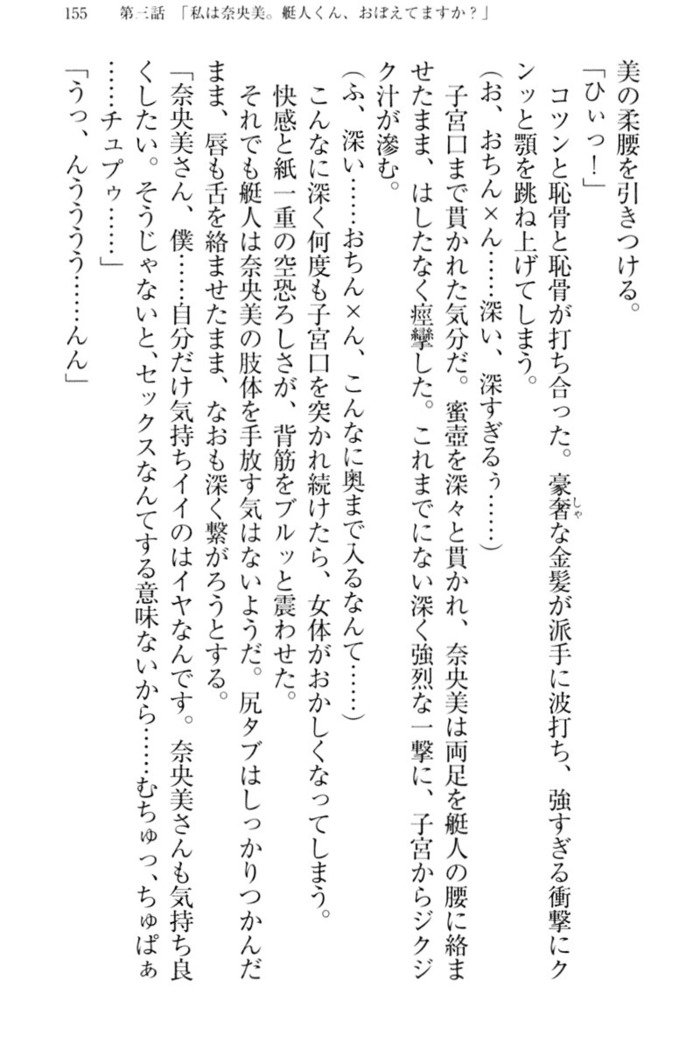 155　第三話　「私は奈央美。艇人くん、おぼえてますか？」
美の柔腰を引きつける。
「ひぃっ！」
　コツンと恥骨と恥骨が打ち合った。豪奢な金髪が派手に波打ち、強すぎる衝撃にク
ンッと顎を跳ね上げてしまう。
（お、おちん×ん……深い、深すぎるぅ……）
　子宮口まで貫かれた気分だ。蜜壺を深々と貫かれ、奈央美は両足を艇人の腰に絡ま
せたまま、はしたなく痙攣した。これまでにない深く強烈な一撃に、子宮からジクジ
ク汁が滲む。
（ふ、深い……おちん×ん、こんなに奥まで入るなんて……）
　こんなに深く何度も子宮口を突かれ続けたら、女体がおかしくなってしまう。
　快感と紙一重の空恐ろしさが、背筋をブルッと震わせた。
　それでも艇人は奈央美の肢体を手放す気はないようだ。尻タブはしっかりつかんだ
まま、唇も舌を絡ませたまま、なおも深く繋がろうとする。
「奈央美さん、僕……自分だけ気持ちイイのはイヤなんです。奈央美さんも気持ち良
くしたい。そうじゃないと、セックスなんてする意味ないから……むちゅっ、ちゅぱぁ
……チュプゥ……」
「うっ、んうううう……んん」
しゃ